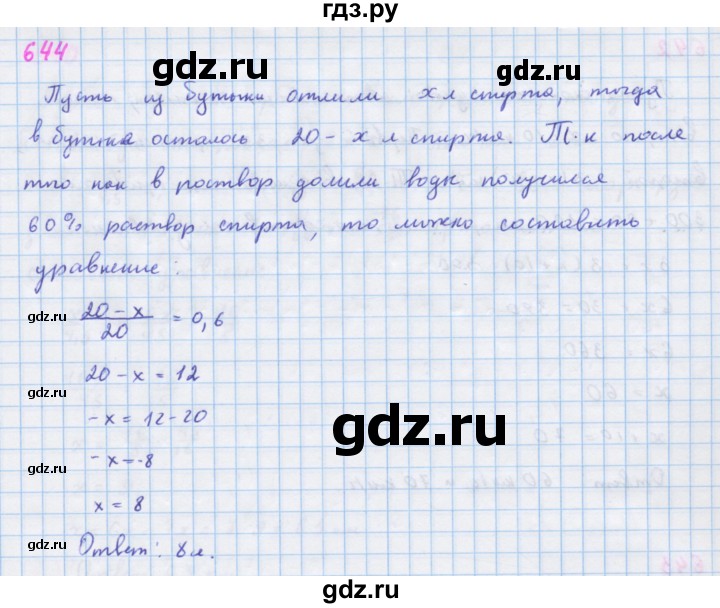 гдз.ру
644
gdz.ru
gdz.ru
Пусть из бутыки отлили x л спирта, тогда
в бутыке осталось 20 - x л спирта. Т.к после
того как в роствор долили воды получился
60% раствор спирта, то можно составить
уравнение:
gdz.ru
20 - x / 20 = 0,6
gdz.ru
20 - x = 12
gdz.ru
gdz.ru
-x = 12 - 20
gdz.ru
-x = -8
x = 8
gdz.ru
Ответ: 8 л.
gdz.ru